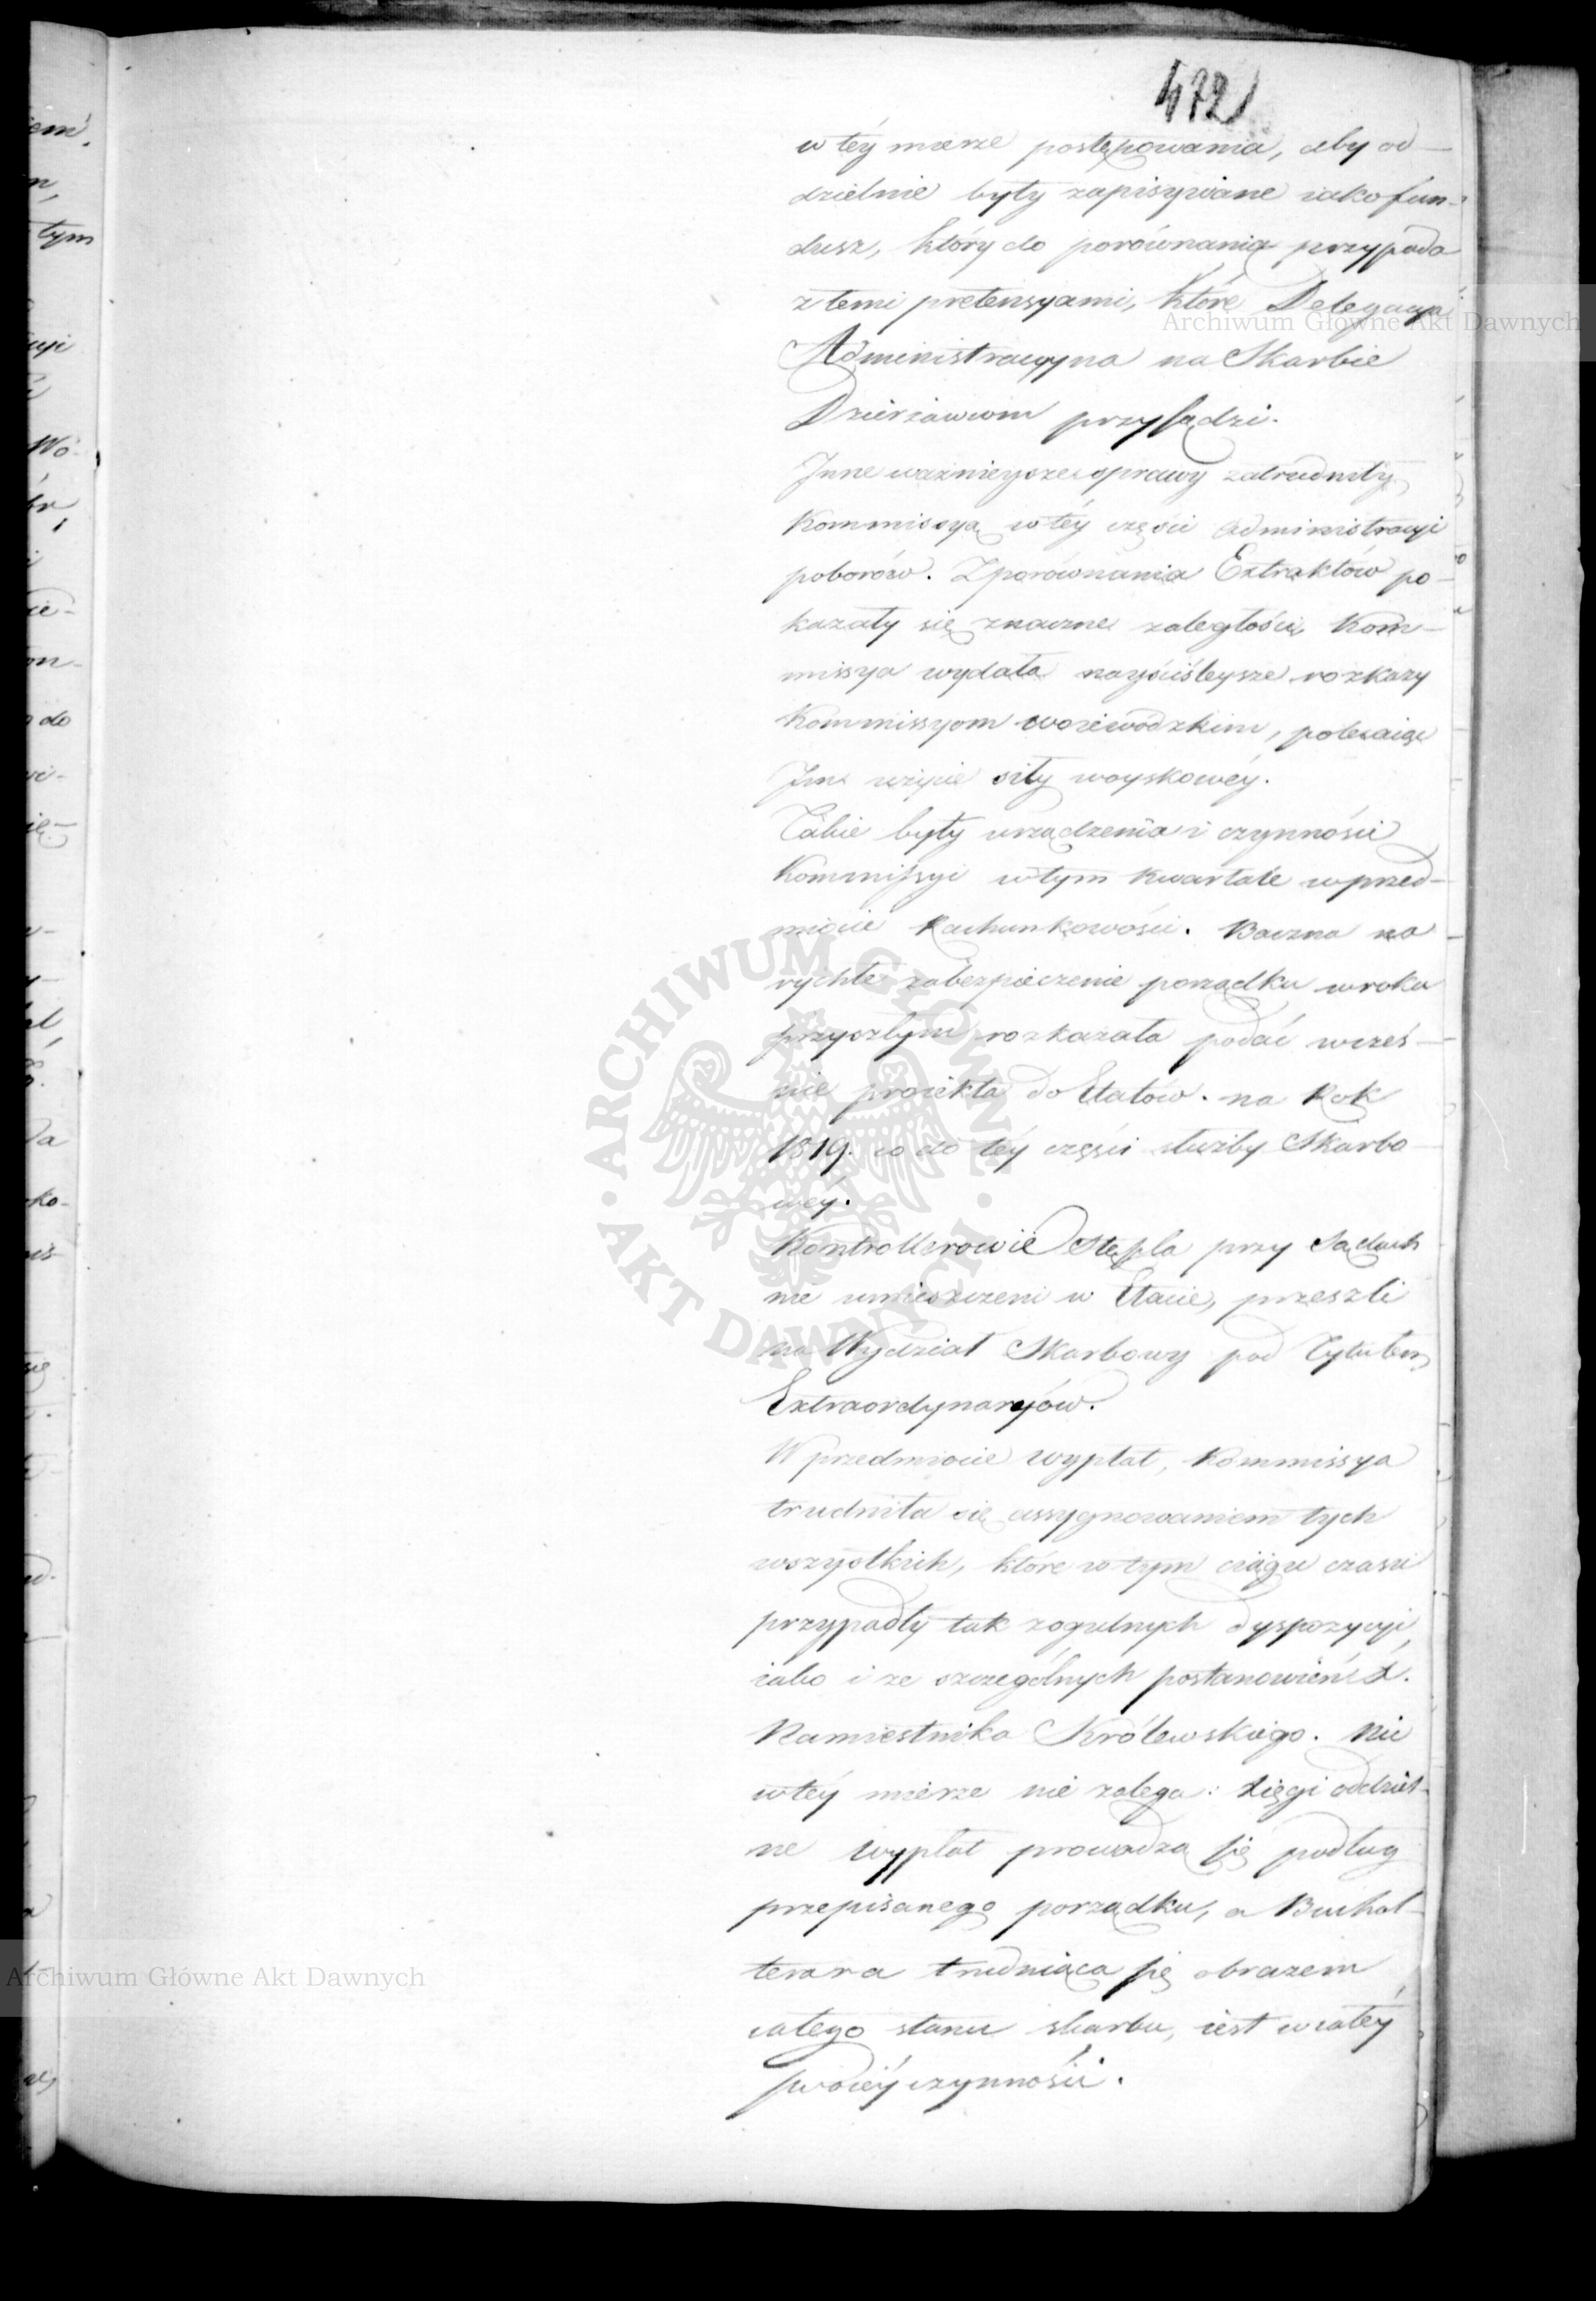 472
w téy mierze postępowania, aby od-
dzielnie były zapisywane iako fun-
dusz, który do porównania przypada
z temi pretensyami, które Delegacya
Administracyyna na Skarbie
Dzierżawcom przysądzi.
Jnne ważnieysze sprawy zatrudniły
Kommissyą w téy części administracyi
poborów. Z porównania Extraktów po-
kazały się znaczne zaległości, Kom-
missya wydała nayściśleysze rozkazy
Kommissyom woiewodzkim, polecaiąc
Jm użycie siły woyskowéy.
Takie były urządzenia i czynności
Kommissyi w tym kwartale w przed-
miocie Rachunkowości. Baczna na
rychłe zabezpieczenie porządku w roku
przyszłym rozkazała podać wcześ-
nie proiekta do Etatów na Rok
1819. co do téy części służby Skarbo-
wéy.
Kontrollerowie Stępla przy Sądach
nie umieszczeni w Etacie, przeszli
na Wydział Skarbowy pod Tytułem
Extraordynaryów.
W przedmiocie wypłat, Kommissya
trudniła się assygnowaniem tych
wszystkich, które w tym ciągu czasu
przypadły tak z ogulnych dyspozycyi,
iako i ze szczególnych postanowień X.
Namiestnika Królewskiego. Nic
w téy mierze nie zalega: Xięgi oddziel-
ne wypłat prowadzą się podług
przepisanego porządku, a Buchal-
terya trudniąca się obrazem
całego stanu skarbu, iest w całéy
swoiéy czynności.
em,
n,
tym
Wo-
br,
ie-
on-
do
ARCHIWUM GŁÓWNE AKT DAWNYCH
Archiwum Główne Akt Dawnych
Archiwum Główne Akt Dawnych